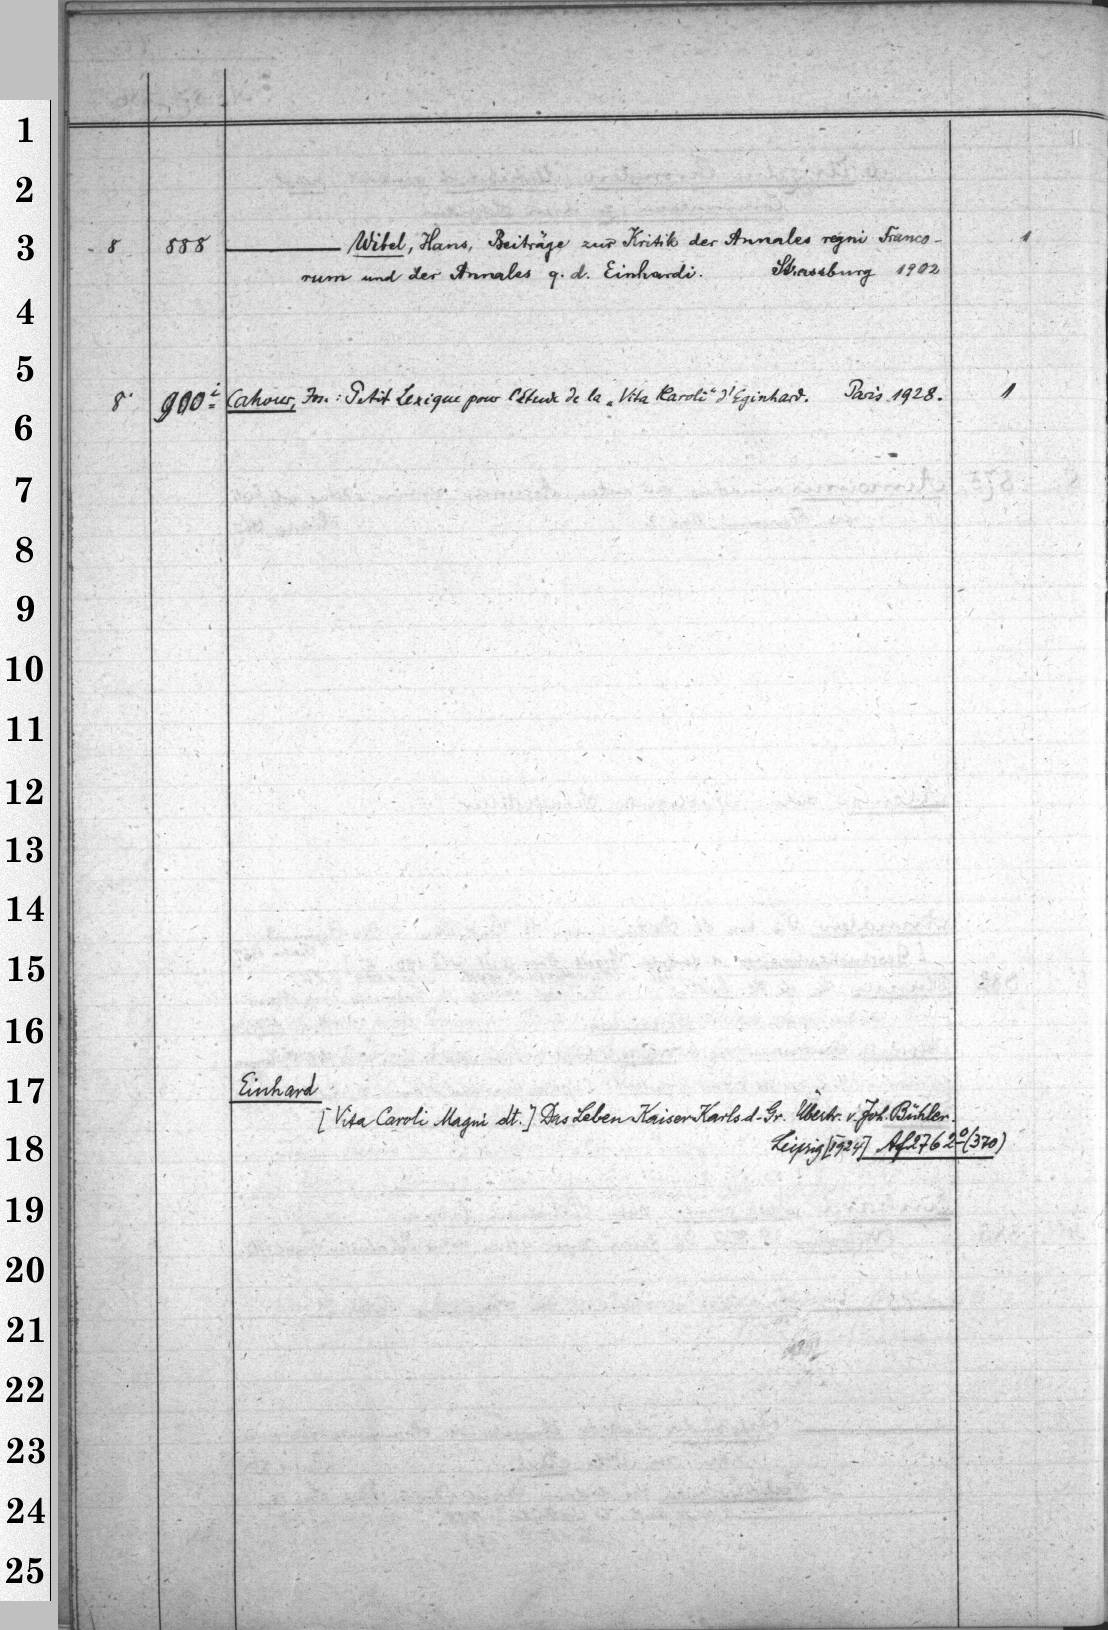 1
2
3
4
5
6
7
8
9
10
11
12
13
14
15
16
17
18
19
20
21
22
23
24
25
8 888 ——— Wibel, Hans, Beiträge zur Kritik der Annales regni Franco- 1
rum und der Annales q. d. Einhardi. Strassburg 1902
8° 900 i Cahour, Jos.: Petit Lexique pour l'Étude de la „Vita Karoli“ d'Eginhard. Paris 1928. 1
Einhard
[Vita Caroli Magni dt.] Das Leben Kaiser Karls d. Gr. Übertr. v. Joh. Bühler.
Leipzig [1924] Af 2762° (370)